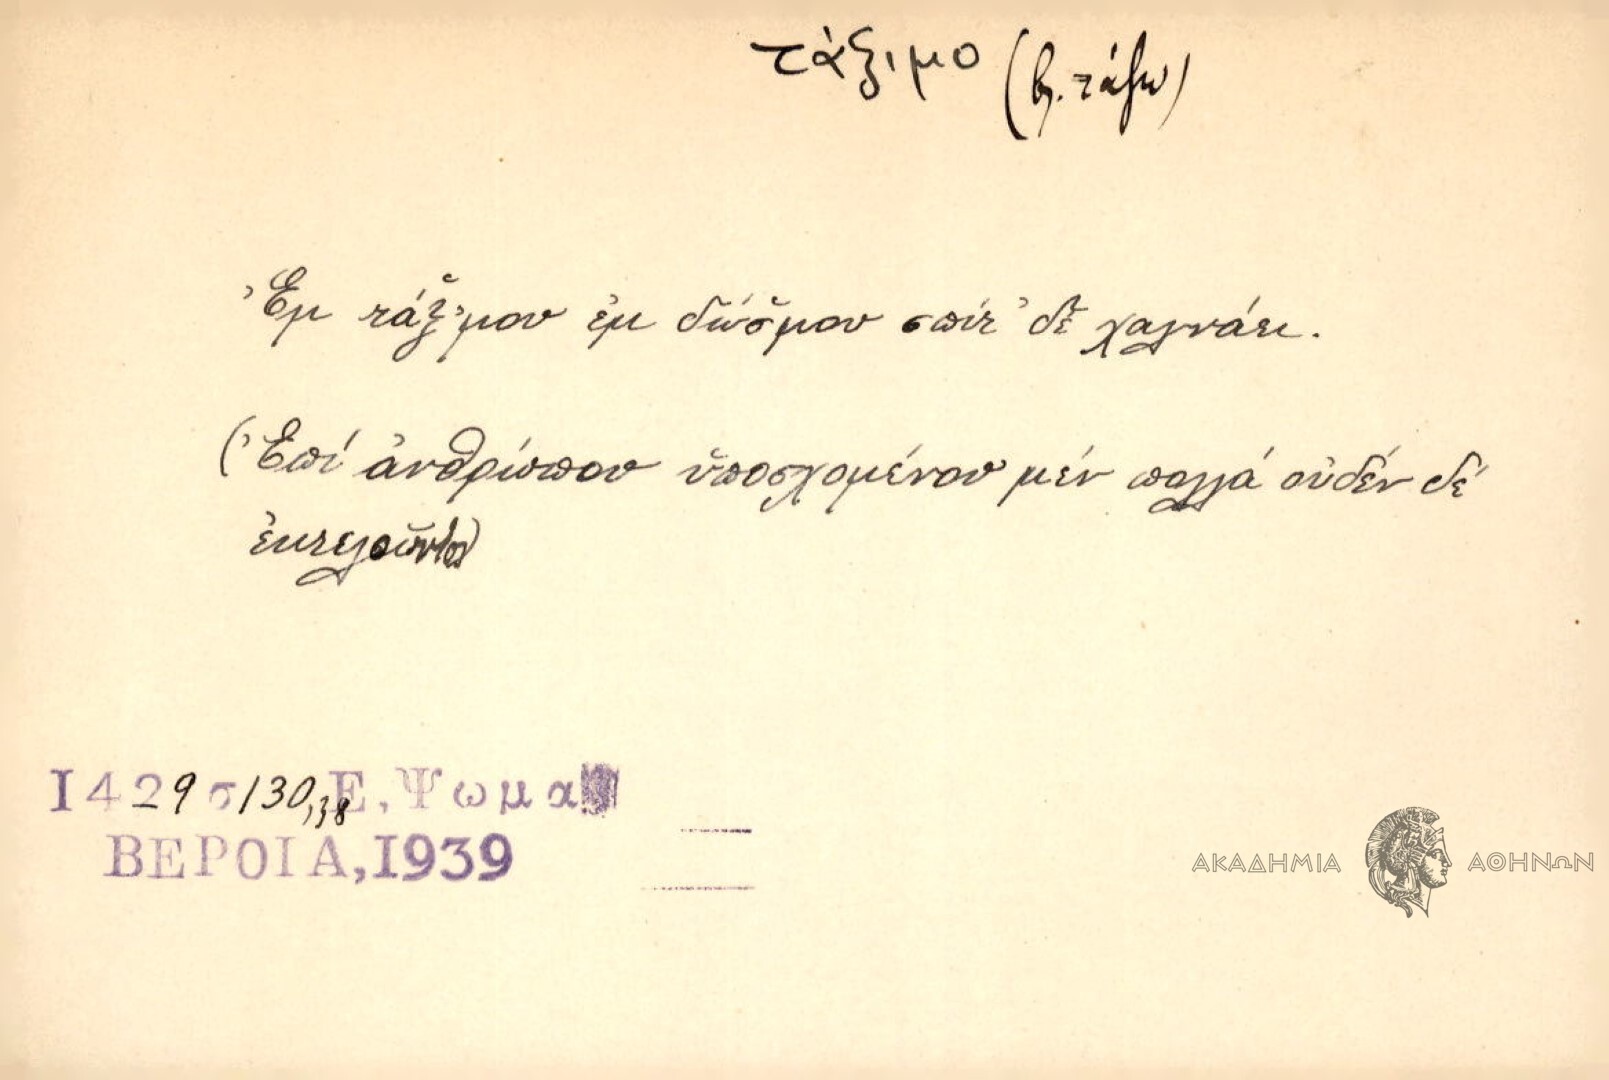 τάξιμο (βλ. τάζω)
Ἐμ τάξ̌'μου ἐμ δώσ̌μου σπίτ' δὲ χαλνάει.
(Ἐπί ἀνθρώπου ὑποσχομένου μέν πολλά οὐδέν δέ
ἐκτελοῦντος)
1429 σ 130,38 Ε, Ψωμα
ΒΕΡΟΙΑ,1939
ΑΚΑΔΗΜΙΑ ΑΘΗΝΩΝ